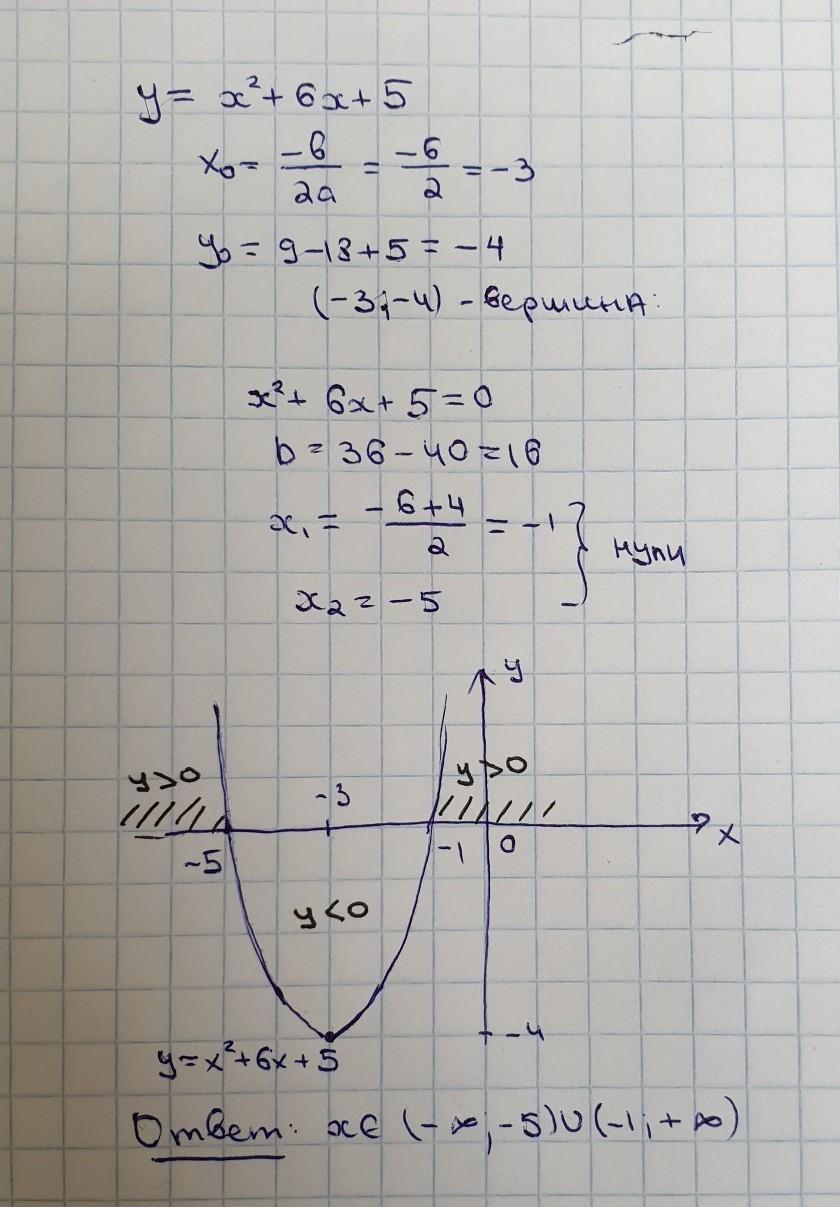 y = x² + 6x + 5
x₀ = -b/2a = -6/2 = -3
y₀ = 9-18+5 = -4
(-3;-4) - вершина:
x² + 6x + 5 = 0
D = 36 - 40 = 16
x₁ = -6+4/2 = -1
x₂ = -5
} нули
y
y>0
y>0
-3
-5
-1
0
x
y<0
-4
y=x²+6x+5
Ответ: x∈ (-∞;-5)∪(-1;+∞)